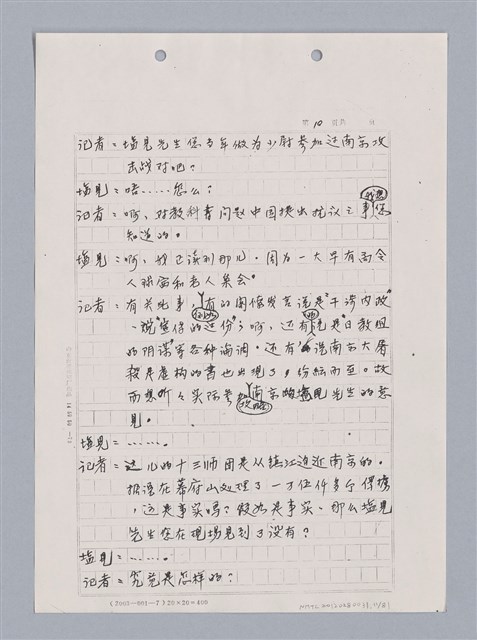 第 10 頁共 頁
记者：塩見先生您当年做为少尉参加过南京攻
击战对吧？
塩見：唔……怎么？
记者：啊、对教科书问题中国提出抗议之事我想您
知道的。
塩見：啊，奴已谈到那儿．因为一大早有而今
人联宙和老人集会。
记者：有关此事，有的阁僚发言说是“干涉内政”
、说“是
的过份”了啊，还有的说是“日教组
的阴谋”等各种论调．还有说南京大屠
殺是虚构的書也出現了，纷紜而至。故
而想听々实际参 攻略 南京的塩見先生的意
見。
塩見：……。
记者：这儿的十三师团是从镇江迫近南京的．
据说在幕府山处理了一万伍仟多个俘擄
，这是事实吗？假如是事实、那么塩見
先生您在现場見到了没有？
塩見：……。
记者：究竟是怎样的？
(7065—001—7) 20×20=400